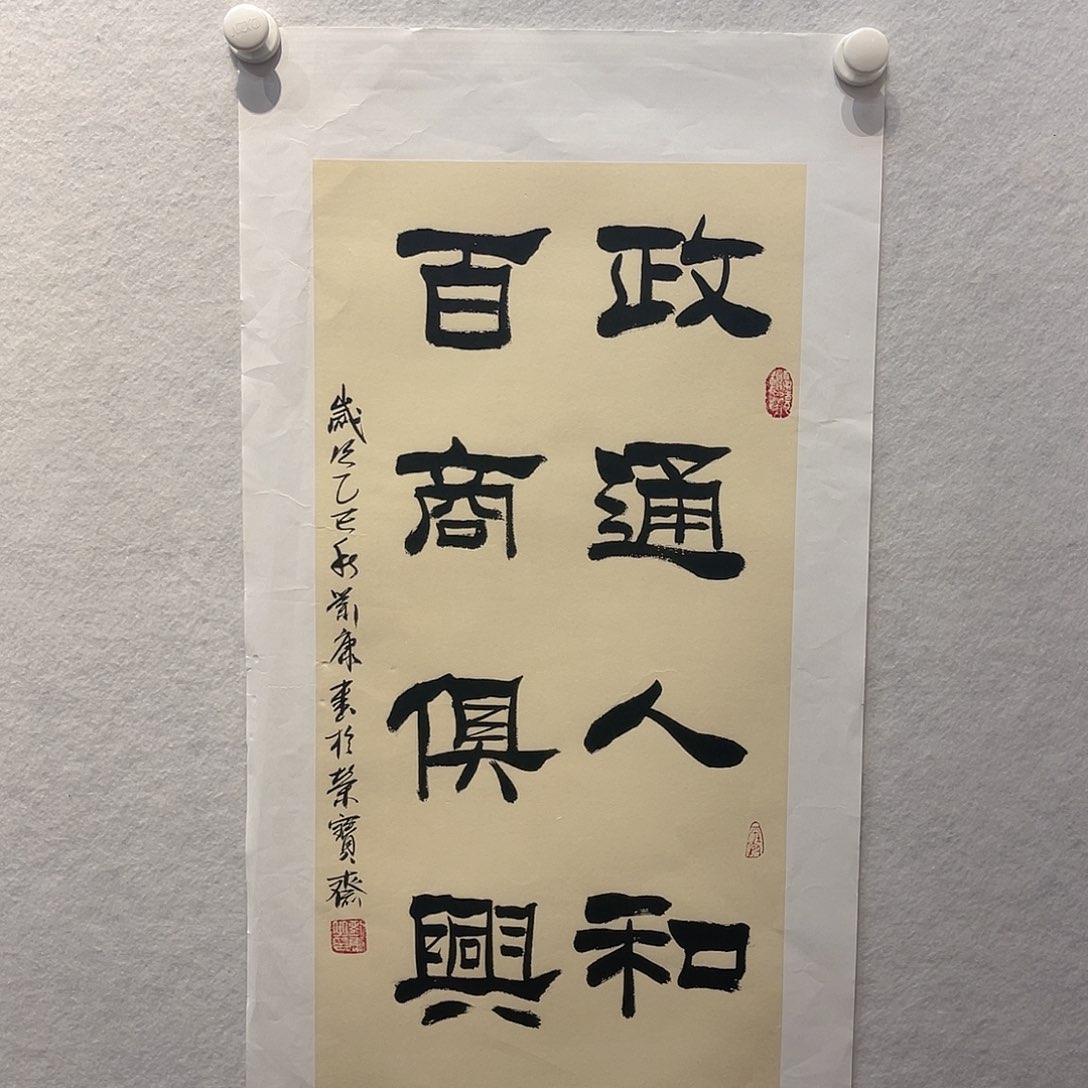 政通人和
百商俱興
歲次乙巳秋崇康書於榮寶齋